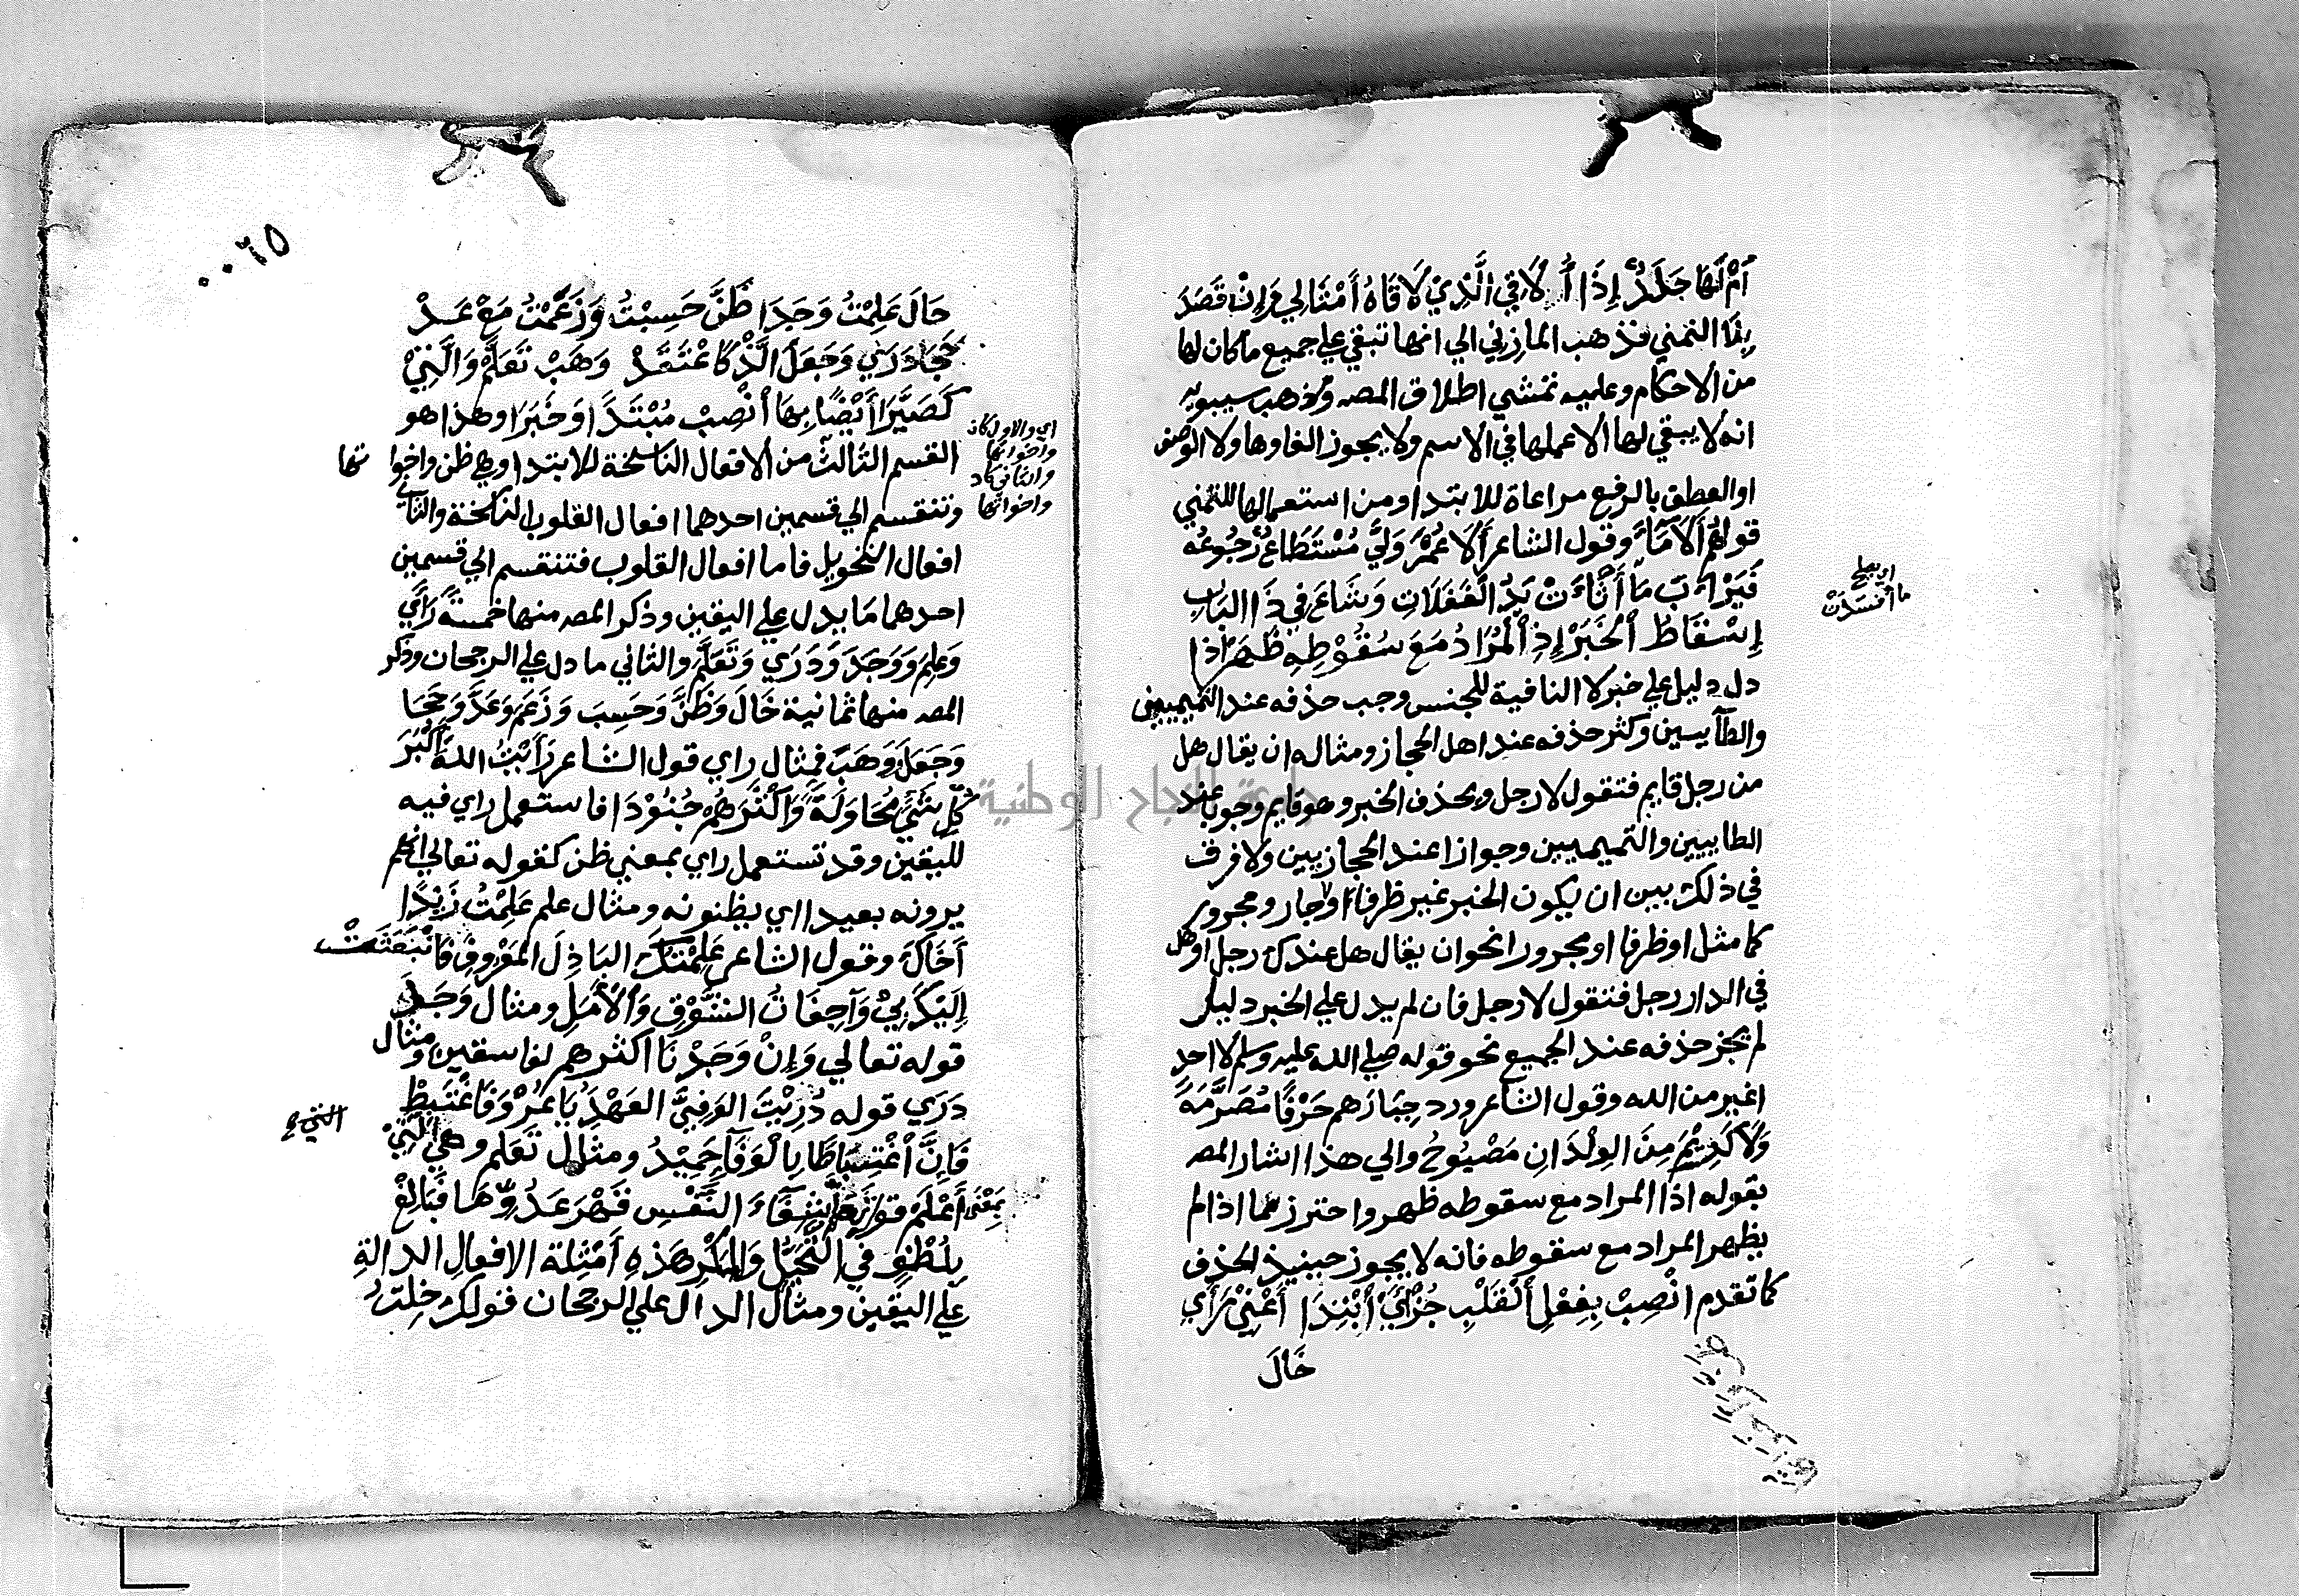 أَمْ لَهَا جَلَدٌ إِذَا أُلَاقِي الَّذِي لَاقَاهُ أَمْثَالِي وَإِنْ قَصَدَ
بِلَا التمني فذهب المازني الي انها تبقي علي جميع ما كان لها
من الاحكام وعليه تمشي اطلاق المصـ وذهب سيبويه
انه لا يبقي لها الا عملها في الاسم ولا يجوز الغاوها ولا الوصف
او العطف بالرفع مراعاة للابتدا ومن استعمالها للتمني
قولهم أَلَا مَاءَ وقول الشاعر أَلَا عُمْرَ وَلَّي مُسْتَطَاعٌ رُجُوعُه
فَيَرْاَبَ مَا أَثْأَتْ يَدُ الْغَفَلَاتِ وَشَاعَ فِي ذَا الْبَابِ
اي يصلح
ما أفسدت
إِسْقَاطُ الْخَبَرْ إِذِ الْمُرَادُ مَعَ سُقُوْطِهِ ظَهَرْ اذا
دل دليل علي خبر لا النافية للجنس وجب حذفه عند التميميين
والطآييين وكثر حذفه عند اهل الحجاز ومثاله ان يقال هل
من رجل قايم فتقول لا رجل ويحذف الخبر وهو قايم وجوبا عند
الطاييين والتميميين وجوازا عند الحجازيين ولا فرق
في ذلك بين ان يكون الخبر غير ظرف ولا جار ومجرور
كما مثل او ظرفا او مجرورا نحو ان يقال هل عندك رجل او هل
في الدار رجل فتقول لا رجل فان لم يدل علي الخبر دليل
لم يجز حذفه عند الجميع نحو قوله صلي الله عليه وسلم لا احد
اغير من الله وقول الشاعر ورد جِبَازَهم حَرْفًا مُصَرَّمَةً
وَلَا كَرِيْمَ مِنَ الوِلْدَانِ مَصْبُوْحُ والي هذا اشار المصـ
بقوله اذا المراد مع سقوطه ظهر واحترز مما اذا لم
يظهر المراد مع سقوطه فانه لا يجوز حينيذ الحذف
كما تقدم انْصِبْ بِفِعْلِ الْقَلْبِ جُزْأَيِ ابْتِدَا أَعْنِيْ رَأَي
خَالَ
٠٠٦٥
خَالَ عَلِمْتُ وَجَدَا ظَنَّ حَسِبْتُ وَزَعَمْتُ مَعَ عَدْ
حَجَا دَرَي وَجَعَلَ الَّذْ كَاعْتَقَدْ وَهَبْ تَعَلَّمْ وَالَّتِيْ
كَصَيَّرَا أَيْضًا بِهَا انْصِبْ مُبْتَدًا وَخَبَرَا وهذا هو
القسم الثالث من الافعال الناسخة للابتدا وهي ظن واخواتها
اي والاول كان
واخواتها
والثاني كاد
واخواتها
وتنقسم الي قسمين احدهما افعال القلوب الناسخة والثاني
افعال التحويل فاما افعال القلوب فتنقسم الي قسمين
احدهما مَا يدل علي اليقين وذكر المصـ منها خمسةً رَأَي
وَعَلِمَ وَوَجَدَ وَدَرَي وَتَعَلَّمْ والثاني ما دل علي الرجحان وذكر
المصـ منها ثمانية خَالَ وَظَنَّ وَحَسِبَ وَزَعَمَ وَعَدَّ وَحَجَا
وَجَعَلَ وَهَبْ فمثال راي قول الشاعر رَأَيْتُ اللهَ أَكْبَرَ
كُلِّ شَيْءٍ مُحَاوَلَةً وَأَكْثَرَهُمْ جُنُوْدَا فاستعمل راي فيه
لليقين وقد تستعمل راي بمعني ظن كقوله تعالي انهم
يرونه بعيدا اي يظنونه ومثال علم عَلِمْتُ زَيْدًا
أَخَاكَ وقول الشاعر عَلِمْتُكَ البَاذِلَ المَعْرُوفَ فَانْبَعَثَتْ
إِلَيْكَ بِيْ وَاجِفَاتُ الشَّوْقِ وَالْأَمَلِ ومثال وَجَدَ
قوله تعالي وَإِنْ وَجَدْنَا اكثرهم لفاسقين ومثال
دَرَي قوله دُرِيْتَ الوَفِيَّ العَهْدِ يَا عَمْرُو فَاغْتَبِطْ
فَإِنَّ اغْتِبَاطًا بِالْوَفَآءِ حَمِيْدُ ومثال تَعَلَّم وهي الَّتِيْ
التي
بِمَعْنَي اعْلَمْ قوله تَعَلَّمْ شِفَآءَ النَّفْسِ قَهْرَ عَدُوِّهَا فَبَالِغْ
بِلُطْفٍ فِي التَّحَيُّلِ وَالْمَكْرِ هَذِهِ أَمْثِلة الافعال الدالةِ
علي اليقين ومثال الدال علي الرجحان قولك خِلتُ
جامعة النجاح الوطنية